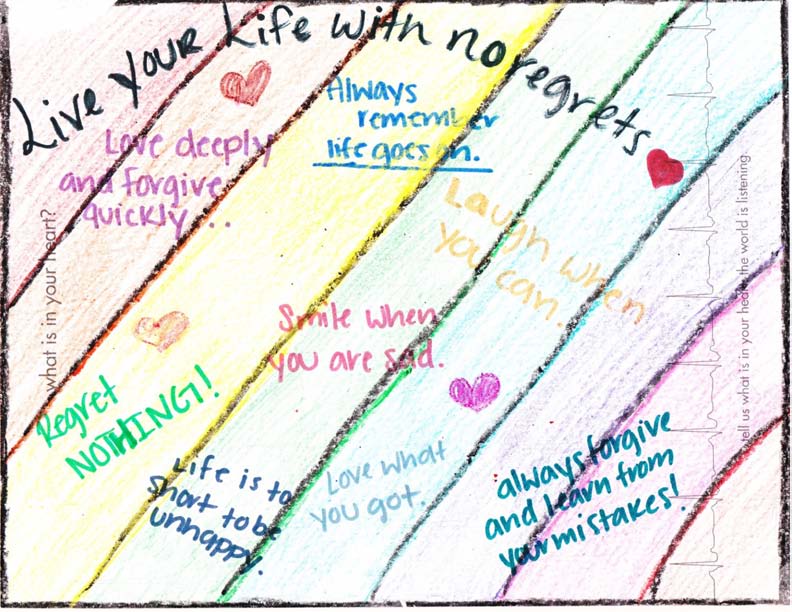 Live your life with no regrets
Love deeply
and forgive
quickly...
Always
remember
life goes on.
Laugh when
you can.
what is in your heart?
Smile when
you are sad.
Regret
NOTHING!
Life is to
short to be
unhappy.
Love what
you got.
always forgive
and learn from
your mistakes!
tell us what is in your heart. the world is listening.